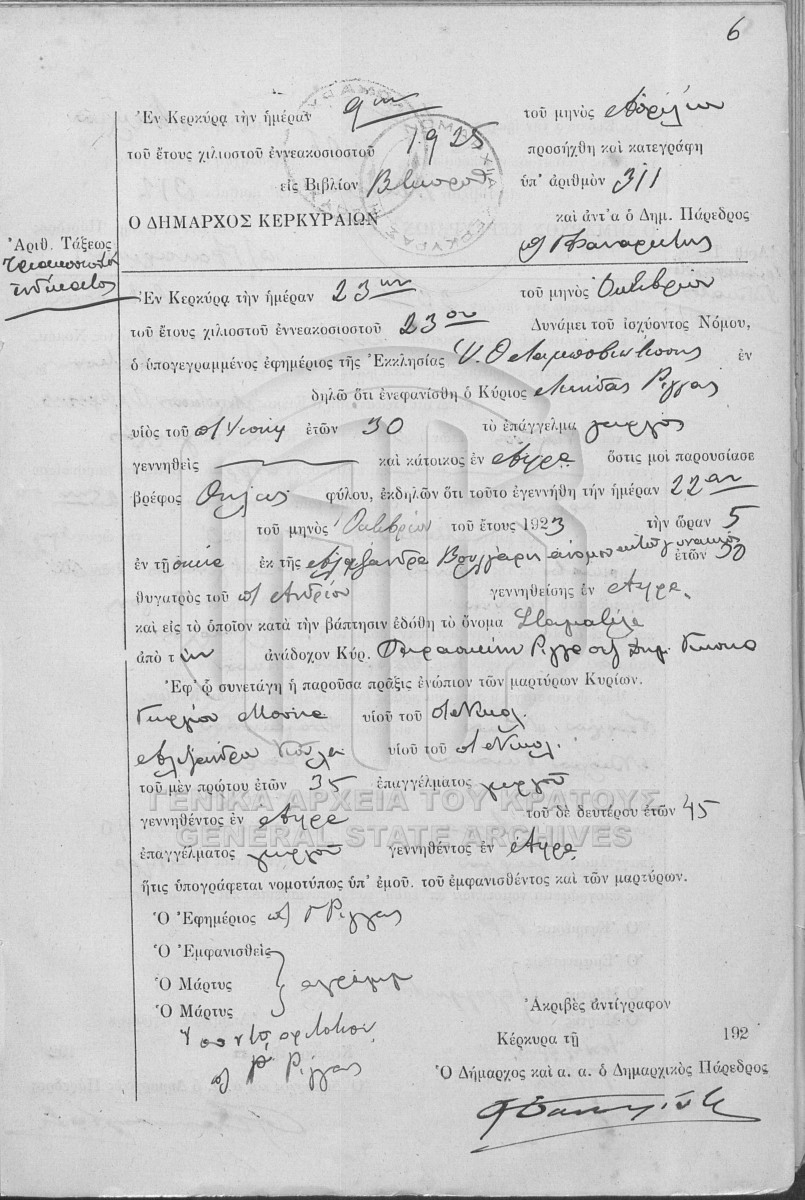 6
Ἐν Κερκύρᾳ τὴν ἡμέραν 9ην τοῦ μηνὸς Ἀπριλίου
τοῦ ἔτους χιλιοστοῦ ἐννεακοσιοστοῦ 1925 προσήχθη καὶ κατεγράφη
εἰς Βιβλίον ὑπ' ἀριθμὸν 311
Ο ΔΗΜΑΡΧΟΣ ΚΕΡΚΥΡΑΙΩΝ καὶ ἀντ'α ὁ Δημ. Πάρεδρος
Ἀριθ. Τάξεως
τριακοσιοστὸν
ἑνδέκατος
Ἐν Κερκύρᾳ τὴν ἡμέραν 23ην τοῦ μηνὸς Ὀκτωβρίου
τοῦ ἔτους χιλιοστοῦ ἐννεακοσιοστοῦ 23ου Δυνάμει τοῦ ἰσχύοντος Νόμου,
ὁ ὑπογεγραμμένος ἐφημέριος τῆς Ἐκκλησίας Υ. Θ. ἐν
δηλῶ ὅτι ἐνεφανίσθη ὁ Κύριος Λεωνίδας Ρίγγας
υἱὸς τοῦ ἐτῶν 30 τὸ ἐπάγγελμα γεωργὸς
γεννηθεὶς καὶ κάτοικος ἐν ὅστις μοὶ παρουσίασε
βρέφος θήλεος φύλου, ἐκδηλῶν ὅτι τοῦτο ἐγεννήθη τὴν ἡμέραν 22αν
τοῦ μηνὸς Ὀκτωβρίου τοῦ ἔτους 1923 τὴν ὥραν 5
ἐν τῇ οἰκίᾳ ἐκ τῆς Ἀλεξάνδρα Βούλγαρη νομίμου αὐτοῦ γυναικὸς ἐτῶν 30
θυγατρὸς τοῦ Ἀνδρέου γεννηθείσης ἐν
καὶ εἰς τὸ ὁποῖον κατὰ τὴν βάπτησιν ἐδόθη τὸ ὄνομα Σταματέλα
ἀπὸ τὴν ἀνάδοχον Κύρ. Παρασκευὴν Ρίγγα
Ἐφ' ᾧ συνετάγη ἡ παροῦσα πρᾶξις ἐνώπιον τῶν μαρτύρων Κυρίων.
Γεωργίου υἱοῦ τοῦ Νικολ.
Ἀλεξάνδρου υἱοῦ τοῦ Νικολ.
τοῦ μὲν πρώτου ἐτῶν 35 ἐπαγγέλματος γεωργοῦ
ΓΕΝΙΚΑ ΑΡΧΕΙΑ ΤΟΥ ΚΡΑΤΟΥΣ
γεννηθέντος ἐν τοῦ δὲ δευτέρου ἐτῶν 45
GENERAL STATE ARCHIVES
ἐπαγγέλματος γεωργοῦ γεννηθέντος ἐν
ἥτις ὑπογράφεται νομοτύπως ὑπ' ἐμοῦ. τοῦ ἐμφανισθέντος καὶ τῶν μαρτύρων.
Ὁ Ἐφημέριος Ρίγγας
Ὁ Ἐμφανισθεὶς
Ὁ Μάρτυς ἀγράμμ
Ὁ Μάρτυς
Ἀκριβὲς ἀντίγραφον
Κέρκυρα τῇ 192
Ρίγγας
Ὁ Δήμαρχος καὶ α. α. ὁ Δημαρχικὸς Πάρεδρος